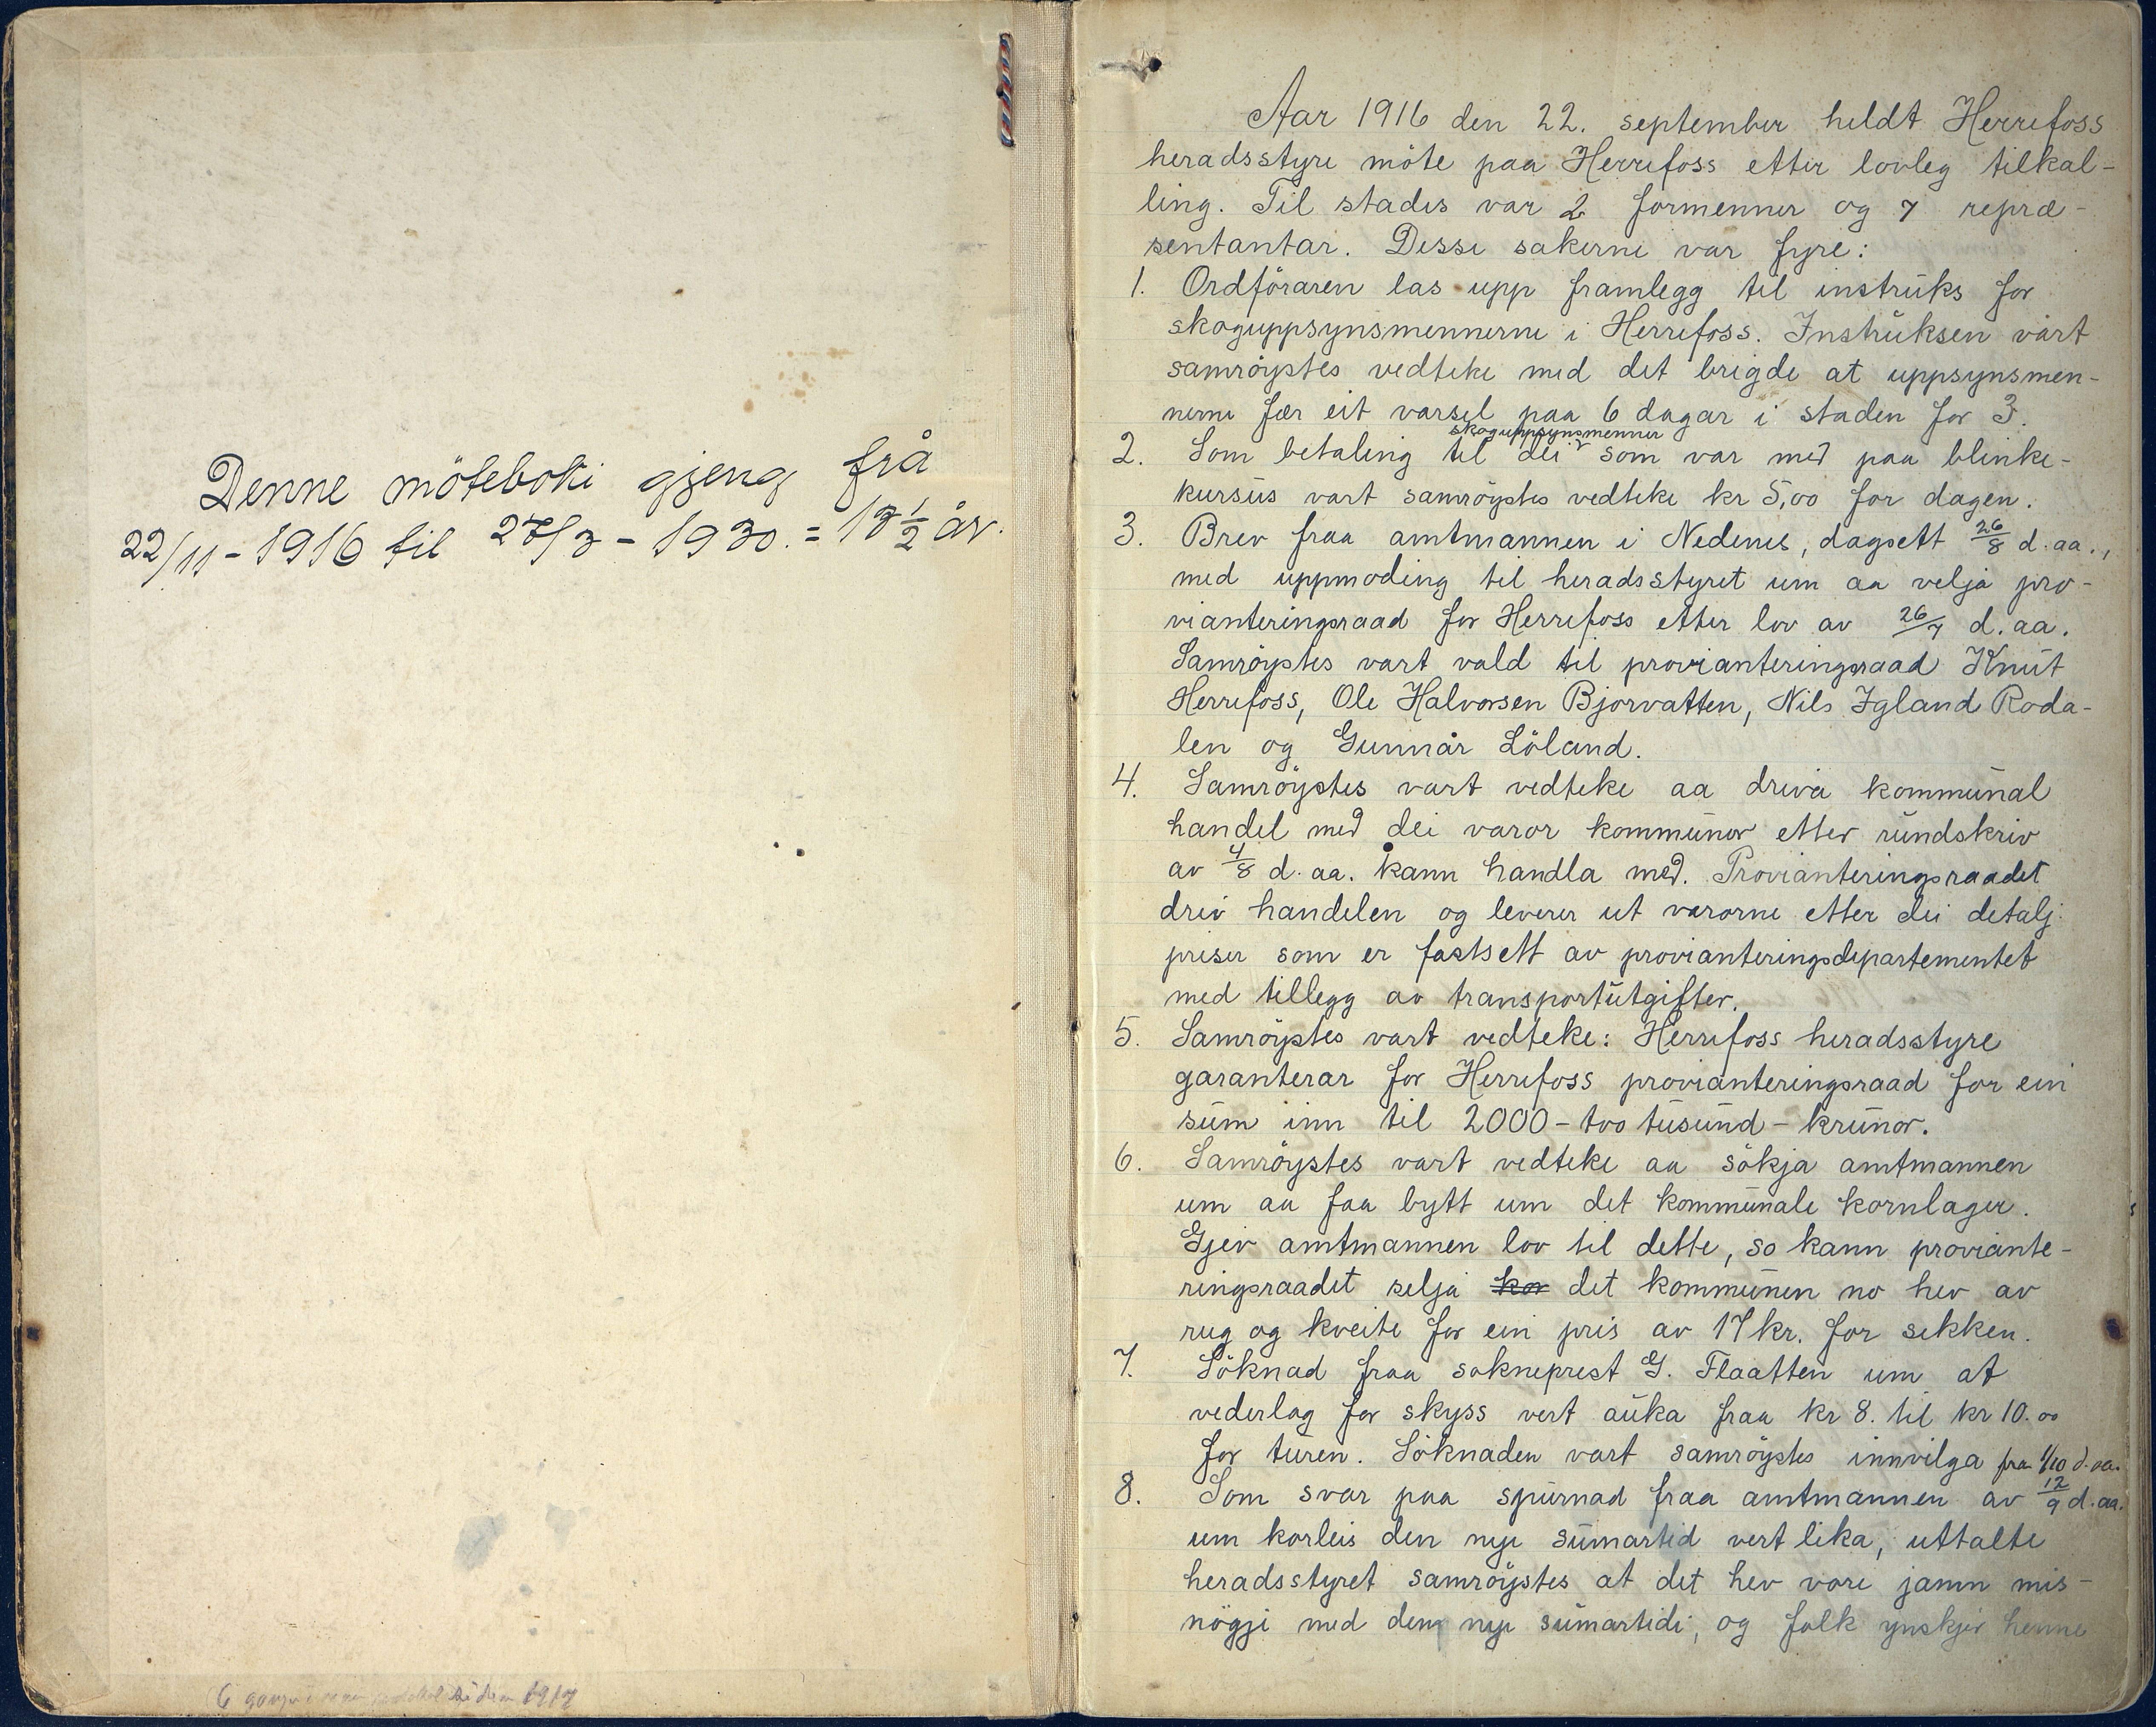 Denne möteboki gjeng frå
22/11 - 1916 til 27/3 - 1930. = 13 1/2 år.
1917
Aar 1916 den 22. september heldt Herrefoss
heradsstyre möte paa Herrefoss etter lovleg tilkal-
ling. Til stades var 2 formenner og 7 repræ-
sentantar. Desse sakerne var fyre:
1. Ordföraren las upp framlegg til instruks for
skoguppsynsmennerne i Herrefoss. Instruksen vart
samröystes vedteke med det brigde at uppsynsmen-
nerne fær eit varsel paa 6 dagar i staden for 3.
skoguppsynsmenner
2. Som betaling til dei som var med paa blinke-
kursus vart samröystes vedteke kr 5,00 for dagen.
3. Brev fraa amtmannen i Nedenes, dagsett 26/8 d. aa.,
med uppmoding til heradsstyret um aa velja pro-
vianteringsraad for Herrefoss etter lov av 26/7 d. aa.
Samröystes vart vald til provianteringsraad Knut
Herrefoss, Ole Halvorsen Bjorvatten, Nils Igland Roda-
len og Gunnar Löland.
4. Samröystes vart vedteke aa driva kommunal
handel med dei varor kommunor etter rundskriv
av 4/8 d. aa. kann handla med. Provianteringsraadet
driv handelen og leverer ut varorne etter dei detalj-
priser som er fastsett av provianteringsdepartementet
med tillegg av transportutgifter.
5. Samröystes vart vedteke: Herrefoss heradsstyre
garanterar for Herrefoss provianteringsraad for ein
sum inn til 2000 - tvo tusund - krunor.
6. Samröystes vart vedteke aa sökja amtmannen
um aa faa bytt um det kommunale kornlager.
Gjev amtmannen lov til dette, so kann proviante-
ringsraadet selja kor det kommunen no hev av
rug og kveite for ein pris av 17 kr. for sekken.
7. Söknad fraa sokneprest G. Flaatten um at
vederlag for skyss vert auka fraa kr 8. til kr 10.00
for turen. Söknaden vart samröystes innvilga fra 1/10 d. aa.
8. Som svar paa spurnad fraa amtmannen av 12/9 d. aa.
um korleis den nye sumartid vert lika, uttalte
heradsstyret samröystes at det hev vore jamn mis-
nögje med den nye sumartidi, og folk ynskjer henne